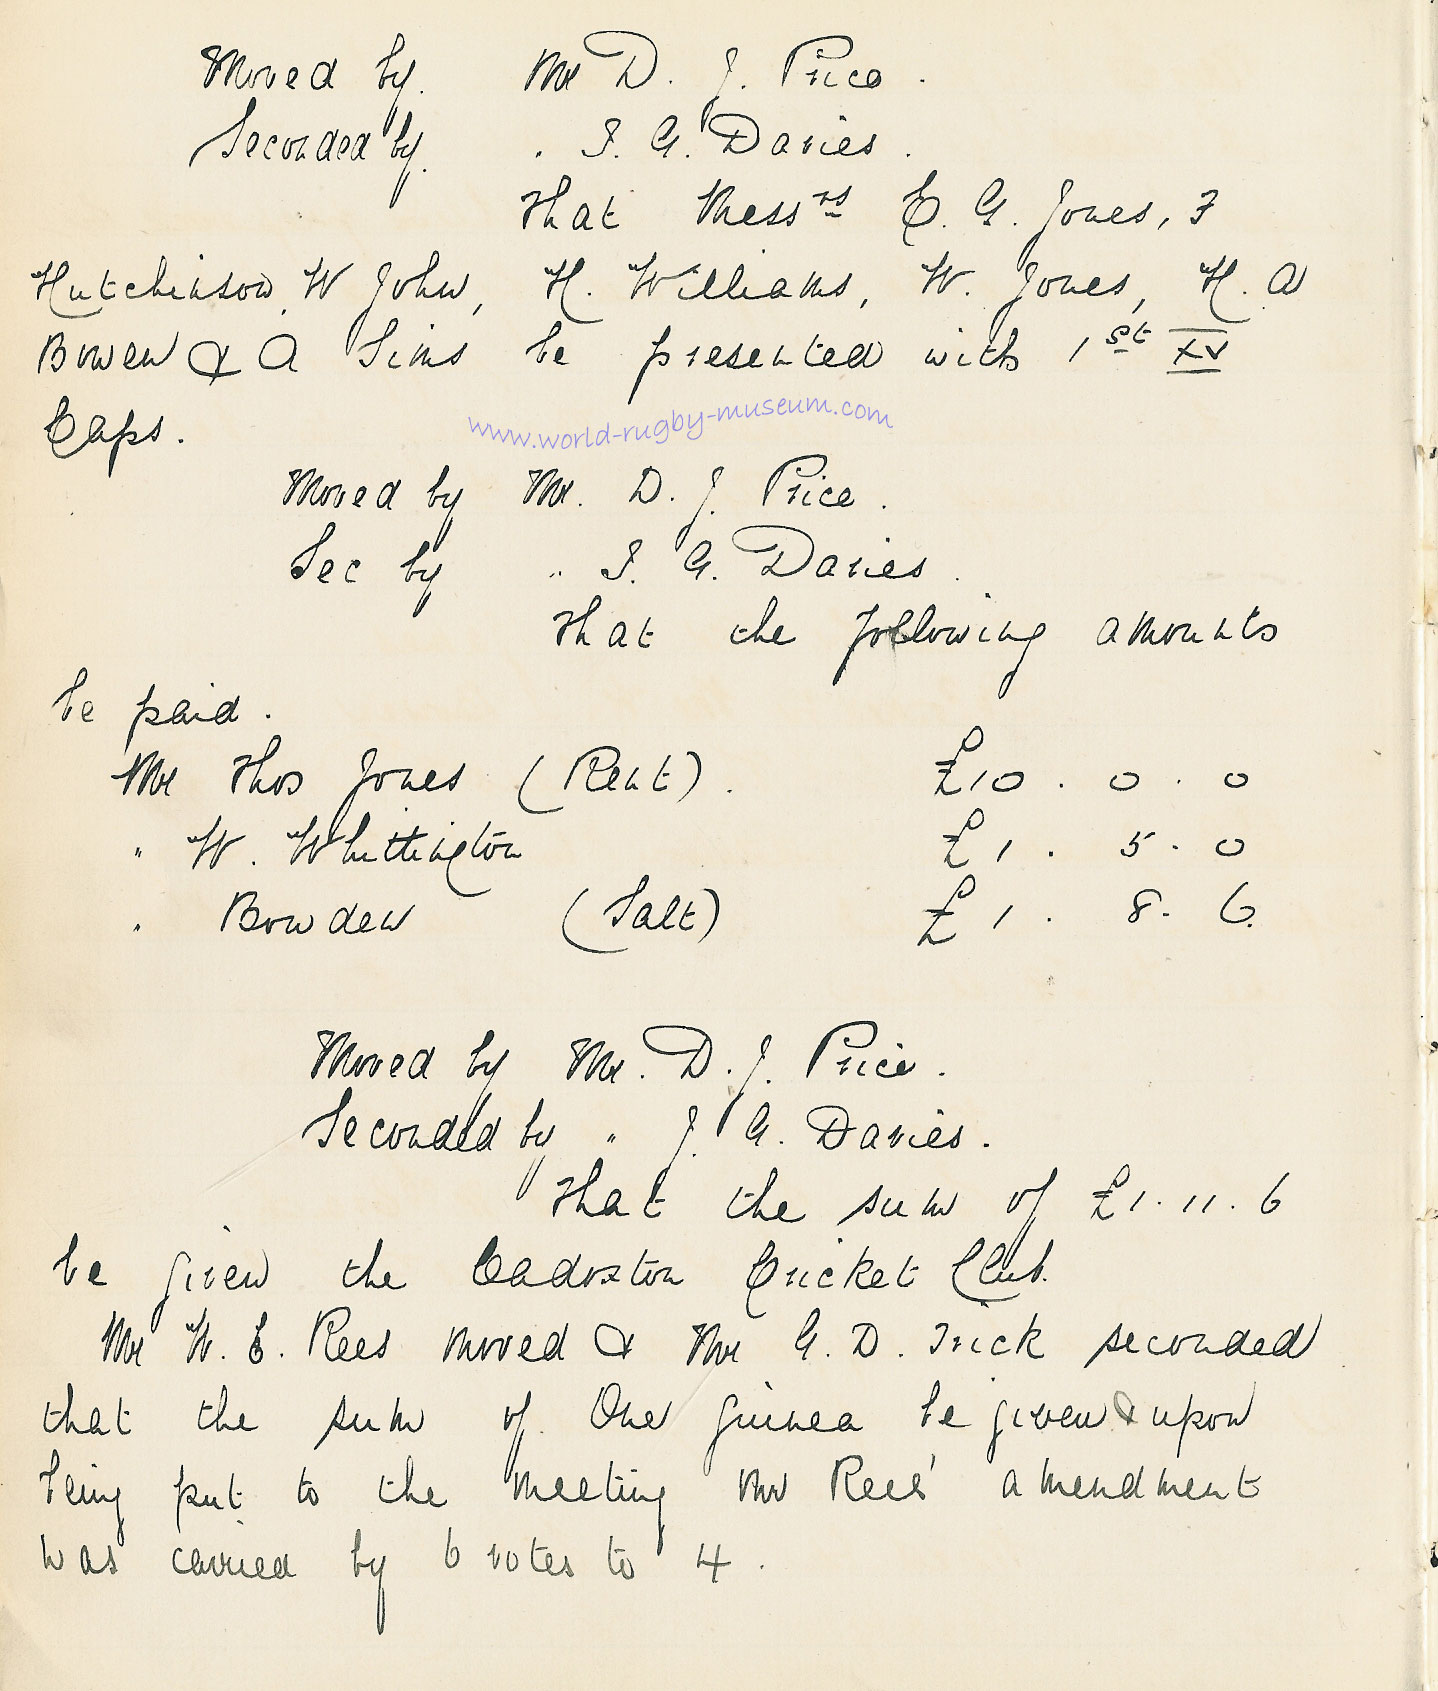 Moved by. Mr D. J. Price.
Seconded by. " J. G. Davies.
That Messrs C. G. Jones, F
Hutchinson, W John, H. Williams, W. Jones, H. A
Bowen & A Sims be presented with 1st XV
Caps.
www.world-rugby-museum.com
Moved by Mr. D. J. Price.
Sec by " J. G. Davies.
That the following amounts
be paid.
Mr Thos Jones (Rent). £10. 0. 0
" W. Whittington £1. 5. 0
" Bowden (Salt) £1. 8. 6.
Moved by Mr. D. J. Price.
Seconded by " J. G. Davies.
That the sum of £1. 11. 6
be given the Cadoxton Cricket Club.
Mr W. E. Rees moved & Mr G. D. Trick seconded
that the sum of One Guinea be given & upon
being put to the meeting Mr Rees' amendment
was carried by 6 votes to 4.